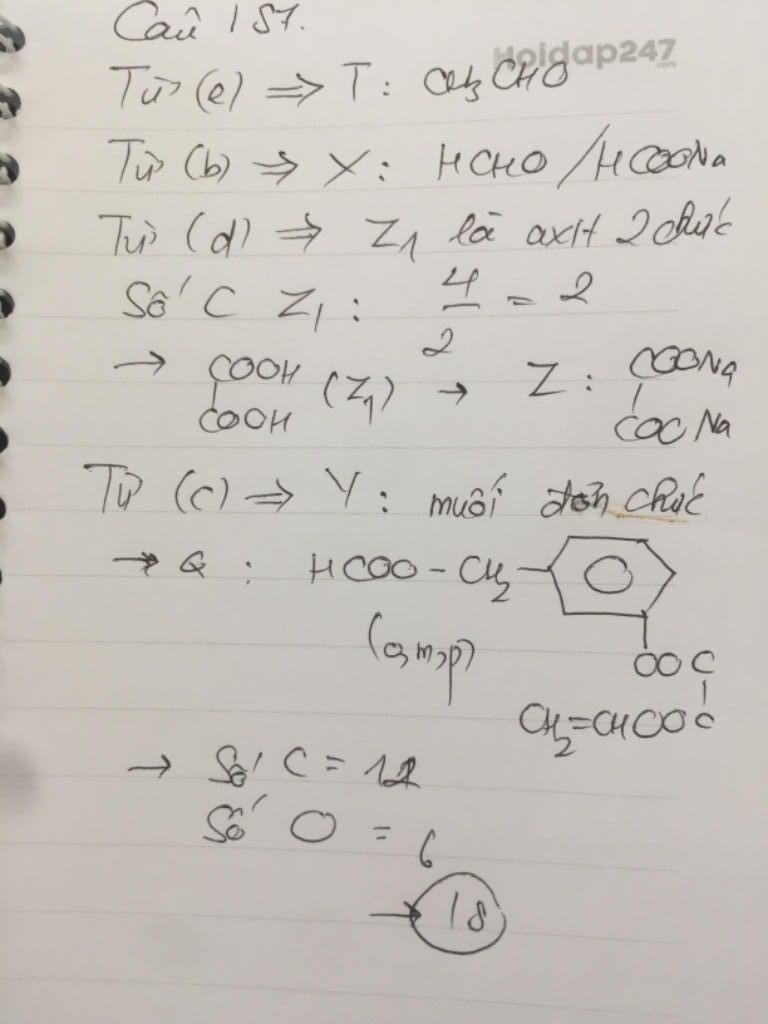 Câu 157.
Hoidap247
.com
Từ (e) ⇒ T: CH3CHO
Từ (b) ⇒ X: HCHO / HCOONa
Từ (d) ⇒ Z1 là axit 2 chức
Số C Z1: 4/2 = 2
→ COOH COOH (Z1) → Z: COONa COONa
Từ (c) ⇒ Y: muối đơn chức
→ Q: HCOO - CH2 -
(o,m,p)
OOC
CH2=CHOOC
→ Số C = 12
Số O = 6
→ 18